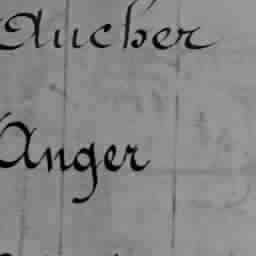 Aucher
Anger